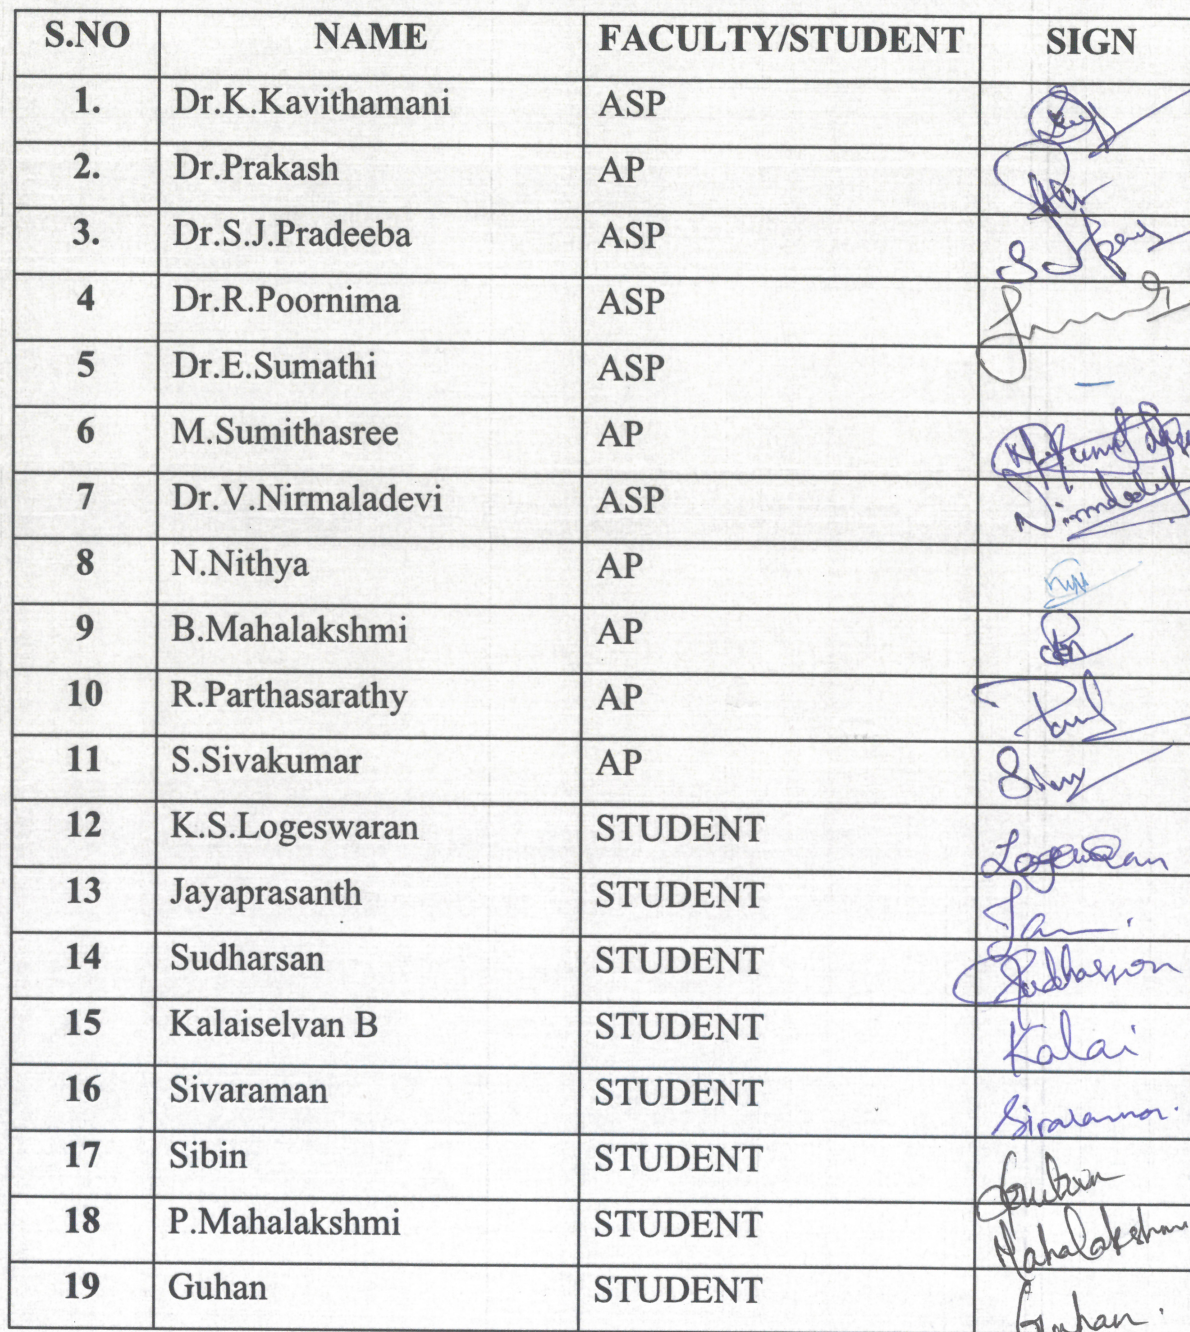 S.NO NAME FACULTY/STUDENT SIGN
1. Dr.K.Kavithamani ASP
2. Dr.Prakash AP
3. Dr.S.J.Pradeeba ASP
4 Dr.R.Poornima ASP
5 Dr.E.Sumathi ASP –
6 M.Sumithasree AP
7 Dr.V.Nirmaladevi ASP Nirmaladevi
8 N.Nithya AP
9 B.Mahalakshmi AP
10 R.Parthasarathy AP
11 S.Sivakumar AP
12 K.S.Logeswaran STUDENT Logeswaran
13 Jayaprasanth STUDENT
14 Sudharsan STUDENT Sudharson
15 Kalaiselvan B STUDENT Kalai
16 Sivaraman STUDENT
17 Sibin STUDENT
18 P.Mahalakshmi STUDENT Mahalakshmi
19 Guhan STUDENT Guhan.